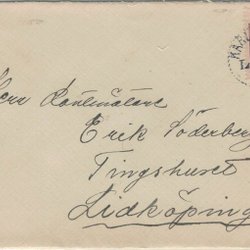 Herr Kontraktör
Erik Söderberg
Tingshuset
Lidköping